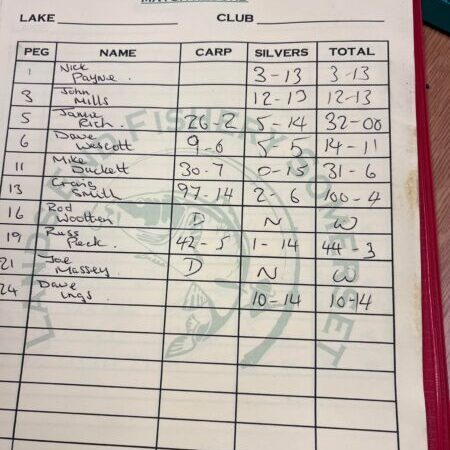 LAKE CLUB
PEG NAME CARP SILVERS TOTAL
1 Nick Payne. 3-13 3-13
3 John Mills 12-13 12-13
5 Jamie Rich. 26-2 5-14 32-00
6 Dave Wescott 9-6 5-5 14-11
11 Mike Duckett 30-7 0-15 31-6
13 Craig Smill 97-14 2-6 100-4
16 Rod Wootten D N W
19 Russ Peck. 42-5 1-14 44-3
21 Joe Massey D N W
24 Dave Ings 10-14 10-14
FISHERY SOMERSET